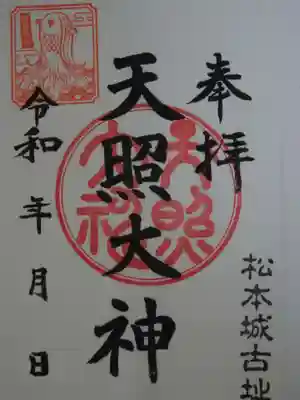 奉拝
天照大神
令和 年 月 日
松本城古址